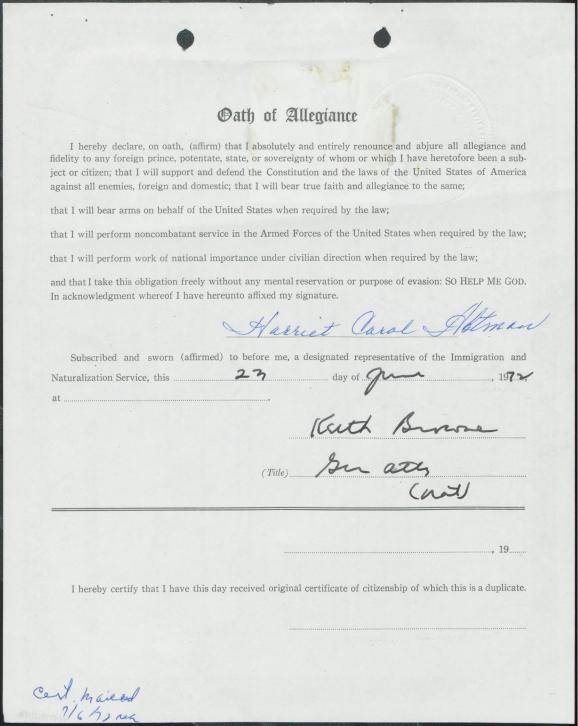 Oath of Allegiance
I hereby declare, on oath, (affirm) that I absolutely and entirely renounce and abjure all allegiance and
fidelity to any foreign prince, potentate, state, or sovereignty of whom or which I have heretofore been a sub-
ject or citizen; that I will support and defend the Constitution and the laws of the United States of America
against all enemies, foreign and domestic; that I will bear true faith and allegiance to the same;
that I will bear arms on behalf of the United States when required by the law;
that I will perform noncombatant service in the Armed Forces of the United States when required by the law;
that I will perform work of national importance under civilian direction when required by the law;
and that I take this obligation freely without any mental reservation or purpose of evasion: SO HELP ME GOD.
In acknowledgment whereof I have hereunto affixed my signature.
Harriet Carol Hotman
Subscribed and sworn (affirmed) to before me, a designated representative of the Immigration and
Naturalization Service, this 23 day of June, 1972
at
Keith Browne
(Title) Gen atty
, 19
I hereby certify that I have this day received original certificate of citizenship of which this is a duplicate.
Cert. mailed
7/6/72